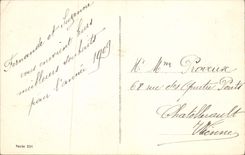 Fernande et Suzanne
vous envoient leurs
meilleurs souhaits
pour l'année 1909
Mr Mme Proveux
68 rue des Quatre Ponts
Chatellerault
Vienne